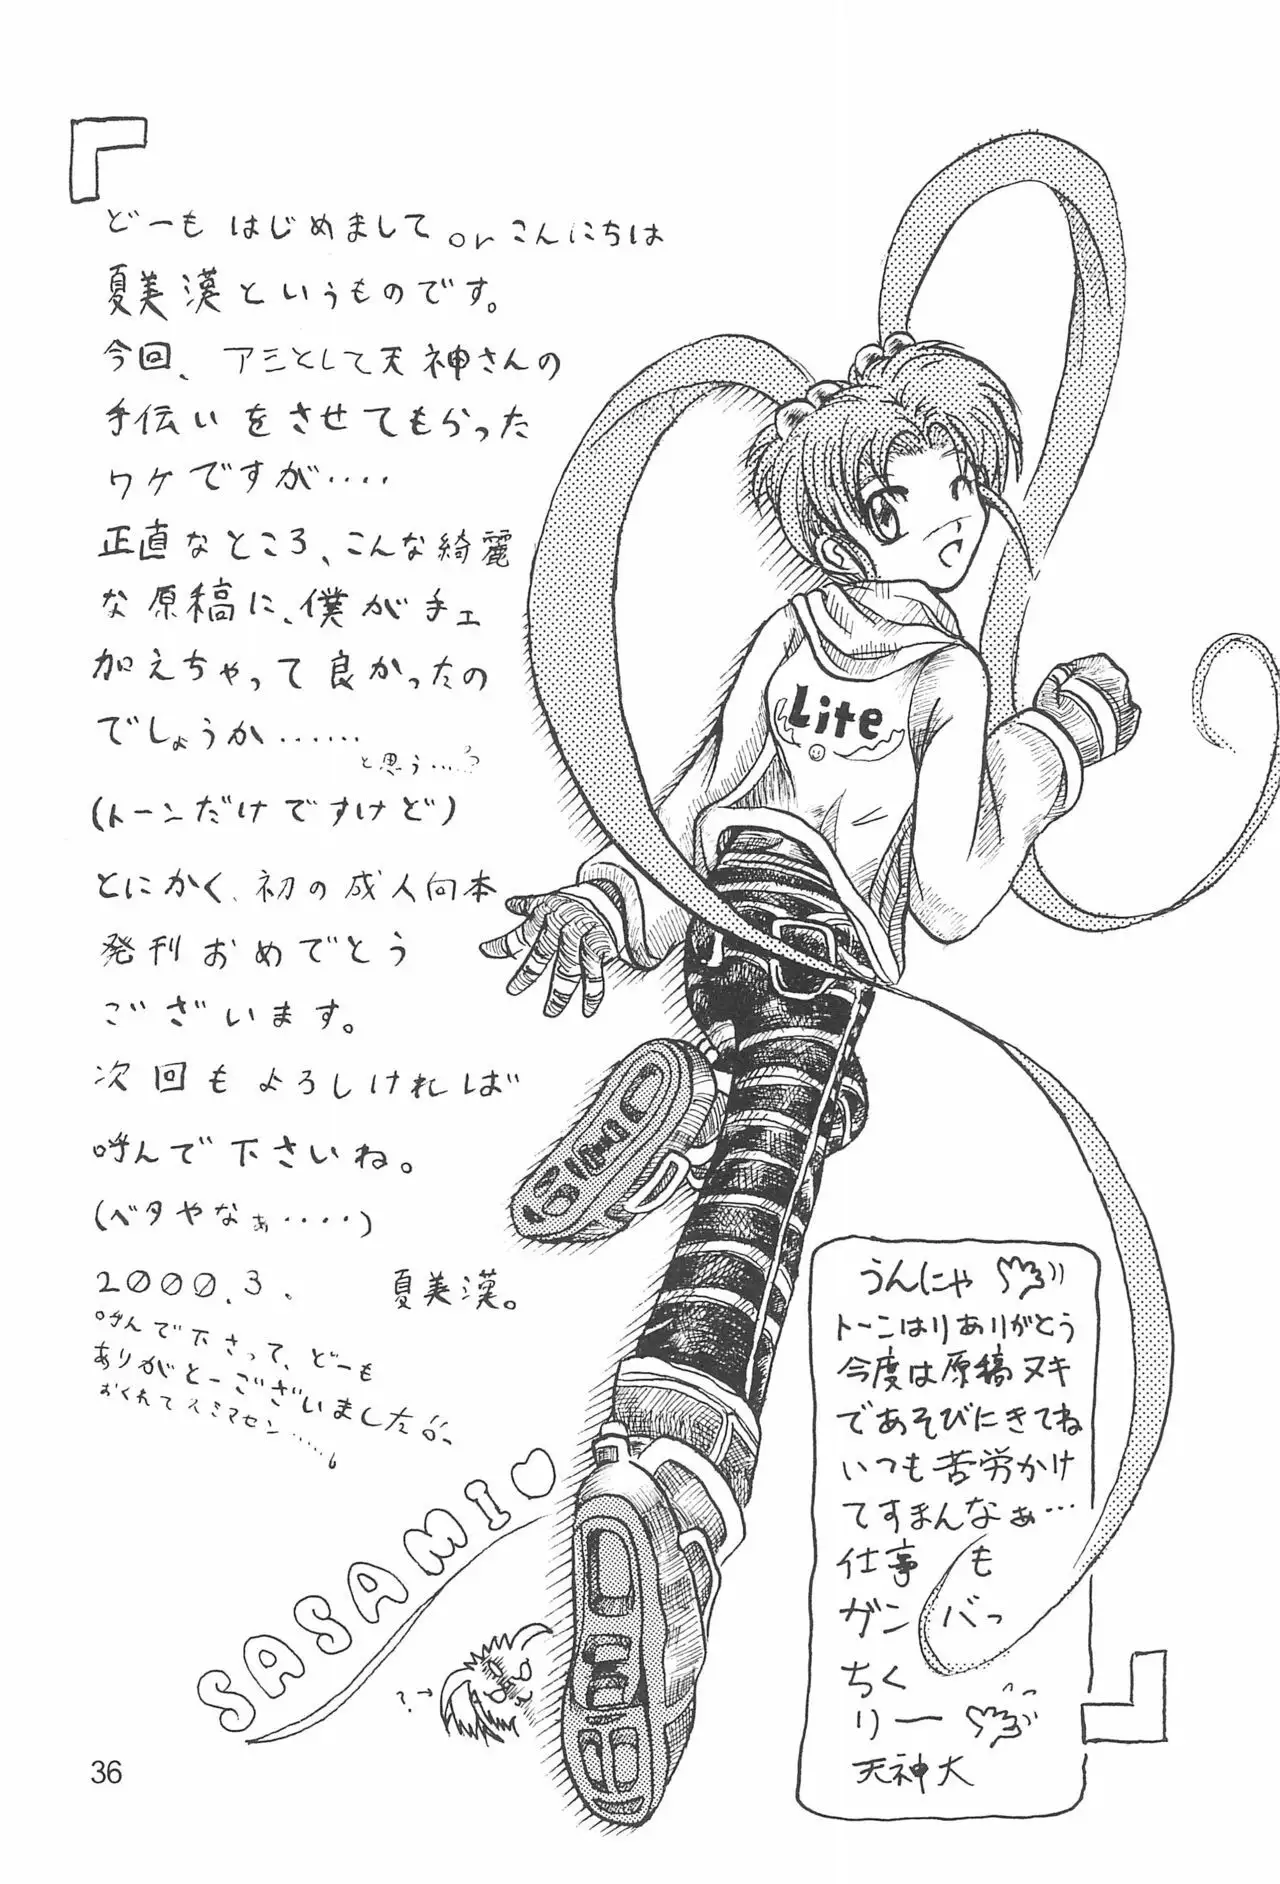 『
どーも はじめまして or こんにちは
夏美漠というものです。
今回、アシとして天神さんの
手伝いをさせてもらった
ワケですが‥‥
正直なところ、こんな綺麗
な原稿に、僕が手ェ
加えちゃって良かったの
でしょうか‥‥‥
と思う…?
(トーンだけですけど)
とにかく、初の成人向本
発刊おめでとう
ございます。
次回もよろしければ
呼んで下さいね。
(ベタやなぁ‥‥)
2000.3. 夏美漠。
呼んで下さって、どーも
ありがとーございました
おくれてスミマセン‥‥
SASAMI♡
?→
Lite
うんにゃ
トーンはりありがとう
今度は原稿ヌキ
であそびにきてね
いつも苦労かけ
てすまんなぁ…
仕事も
ガンバっ
ちくり
リー
天神大
』
36